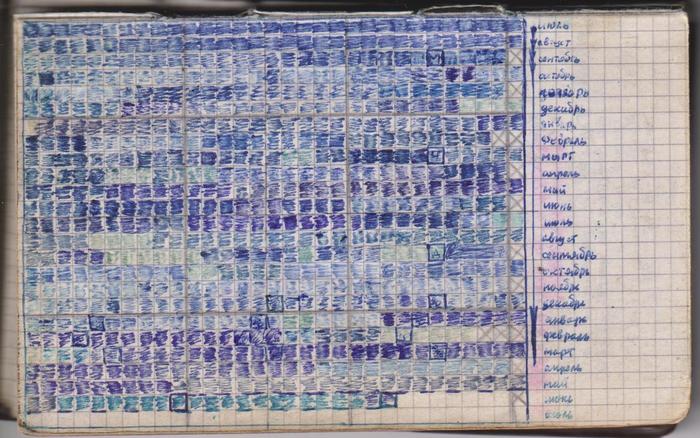 июль
август
сентябрь
октябрь
ноябрь
декабрь
январь
февраль
март
апрель
май
июнь
июль
август
сентябрь
октябрь
ноябрь
декабрь
январь
февраль
март
апрель
май
июнь
июль